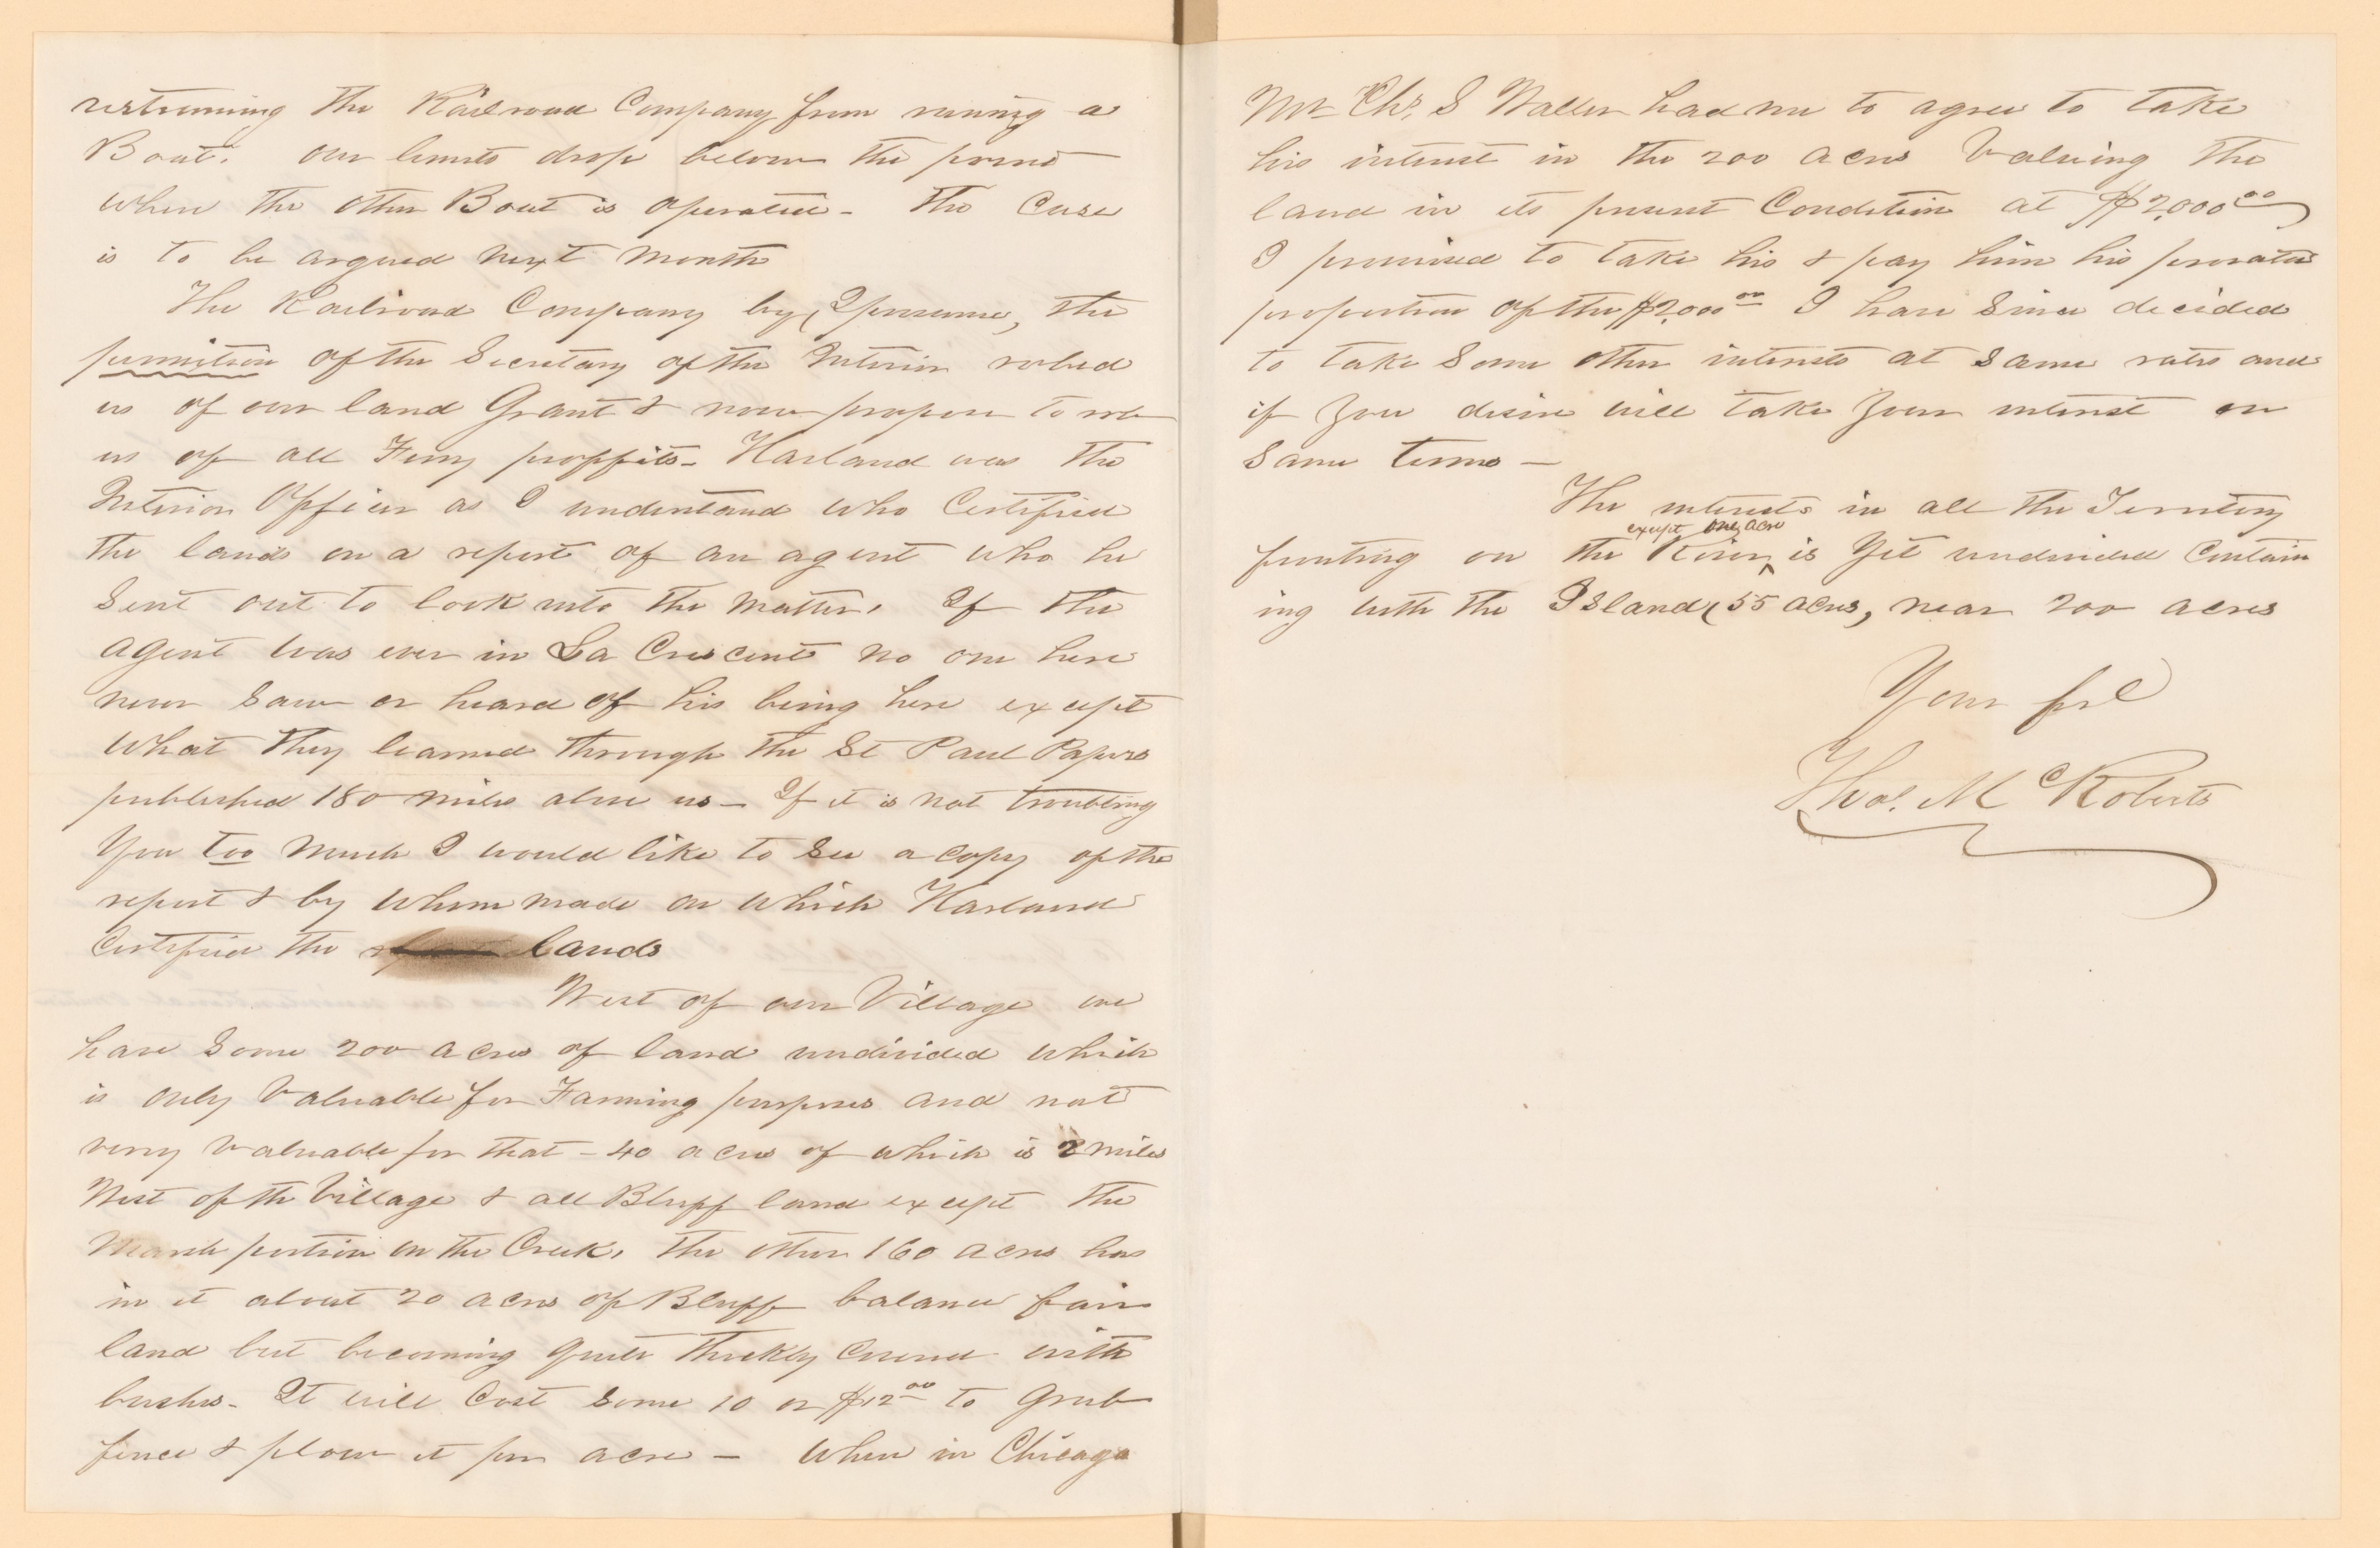 restraining the Railroad Company from runing a
Boat. our limits drop below the point
where the other Boat is operated - The Case
is to be argued next month
The Railroad Company by, I presume, the
permition of the Secretary of the Interior robed
us of our land Grant & now propose to rob
us of all Ferry proffits - Harland was the
Interior Officer as I understand who Certified
the lands on a report of an agent who he
Sent out to look into the matter, If the
agent was ever in La Crescent no one here
never saw or heard of his being here except
What they learned through the St Paul Papers
published 180 miles above us - If it is not troubling
You too much I would like to See a copy of the
report & by whom made on which Harland
Certified the lands
West of our Village we
have Some 200 acres of land undivided which
is only Valuable for Farming purposes and not
very valuable for that - 40 acres of which is 2 miles
West of the Village & all Bluff land except the
Marsh portion on the Creek, The other 160 acres has
in it about 20 acres of Bluff balance fair
land but becoming quite thickly covered with
bushes - It will Cost Some 10 or $12.00 to Grub
fence & plow it per acre - When in Chicago
Mr Chs. S Waller had me to agree to take
his interest in the 200 acres Valuing the
land in its present Condition at $2,000 00
I promised to take his & pay him his prorata
proportion of the $2,000 00 I have Since decided
to take Some other interests at Same rates and
if you desire will take your interest on
Same terms —
The interests in all the Territory
fronting on the River except one acre is Yet undivided Contain
ing with the Island, 55 acres, near 200 acres
Your frd
Thos. McRoberts